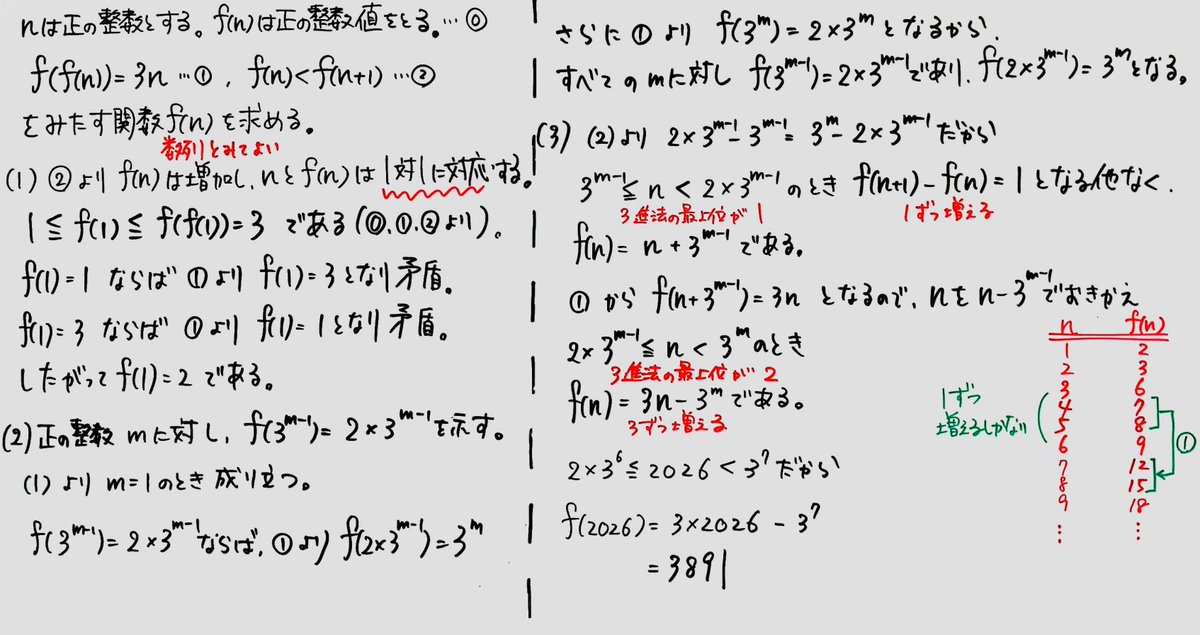 nは正の整数とする。f(n)は正の整数値をとる。…⓪
f(f(n))=3n …①, f(n)<f(n+1) …②
をみたす関数f(n)を求める。
数列とみてよい
(1) ②より f(n)は増加し、nとf(n)は1対1に対応する。
1≦f(1)≦f(f(1))=3 である(⓪,①,②より)。
f(1)=1 ならば ①より f(1)=3となり矛盾。
f(1)=3 ならば ①より f(1)=1となり矛盾。
したがって f(1)=2 である。
(2) 正の整数 mに対し、f(3^{m-1})=2×3^{m-1}を示す。
(1)より m=1のとき成り立つ。
f(3^{m-1})=2×3^{m-1}ならば、①より f(2×3^{m-1})=3^m
さらに①より f(3^m)=2×3^mとなるから、
すべてのmに対し f(3^{m-1})=2×3^{m-1}であり、f(2×3^{m-1})=3^mとなる。
(3) (2)より 2×3^{m-1}-3^{m-1}=3^m-2×3^{m-1}だから
3^{m-1}≦n<2×3^{m-1}のとき f(n+1)-f(n)=1となる他なく、
3進法の最上位が1
1ずつ増える
f(n)=n+3^{m-1}である。
①から f(n+3^{m-1})=3n となるので、nをn-3^{m-1}でおきかえ
2×3^{m-1}≦n<3^mのとき
3進法の最上位が2
f(n)=3n-3^mである。
3ずつ増える
2×3^6≦2026<3^7だから
f(2026)=3×2026-3^7
=3891
n f(n)
1 2
2 3
3 6
4 7
5 8
6 9
7 12
8 15
9 18
⋮ ⋮
1ずつ
増えるしかない
①